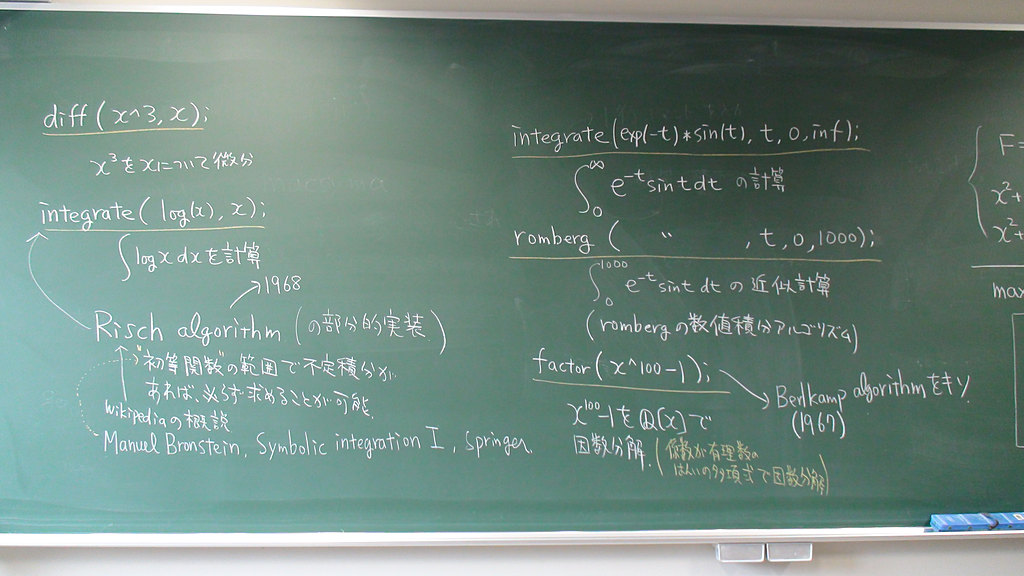 diff(x^3, x);
x³をxについて微分
integrate(log(x), x);
∫log x dxを計算
→1968
Risch algorithm (の部分的実装)
"初等関数"の範囲で不定積分が
あれば、必らず求めることが可能.
wikipediaの概説
Manuel Bronstein, Symbolic integration I, Springer.
integrate(exp(-t)*sin(t), t, 0, inf);
∫₀^∞ e^-t sin t dt の計算
romberg ( 〃 , t, 0, 1000);
∫₀^1000 e^-t sin t dt の近似計算
(rombergの数値積分アルゴリズム)
factor(x^100-1);
Berlkamp algorithmをもり
(1967)
x^100-1をQ[x]で
因数分解.
(係数が有理数の
はんいの多項式で因数分解)
F=
x²+
x²+
max